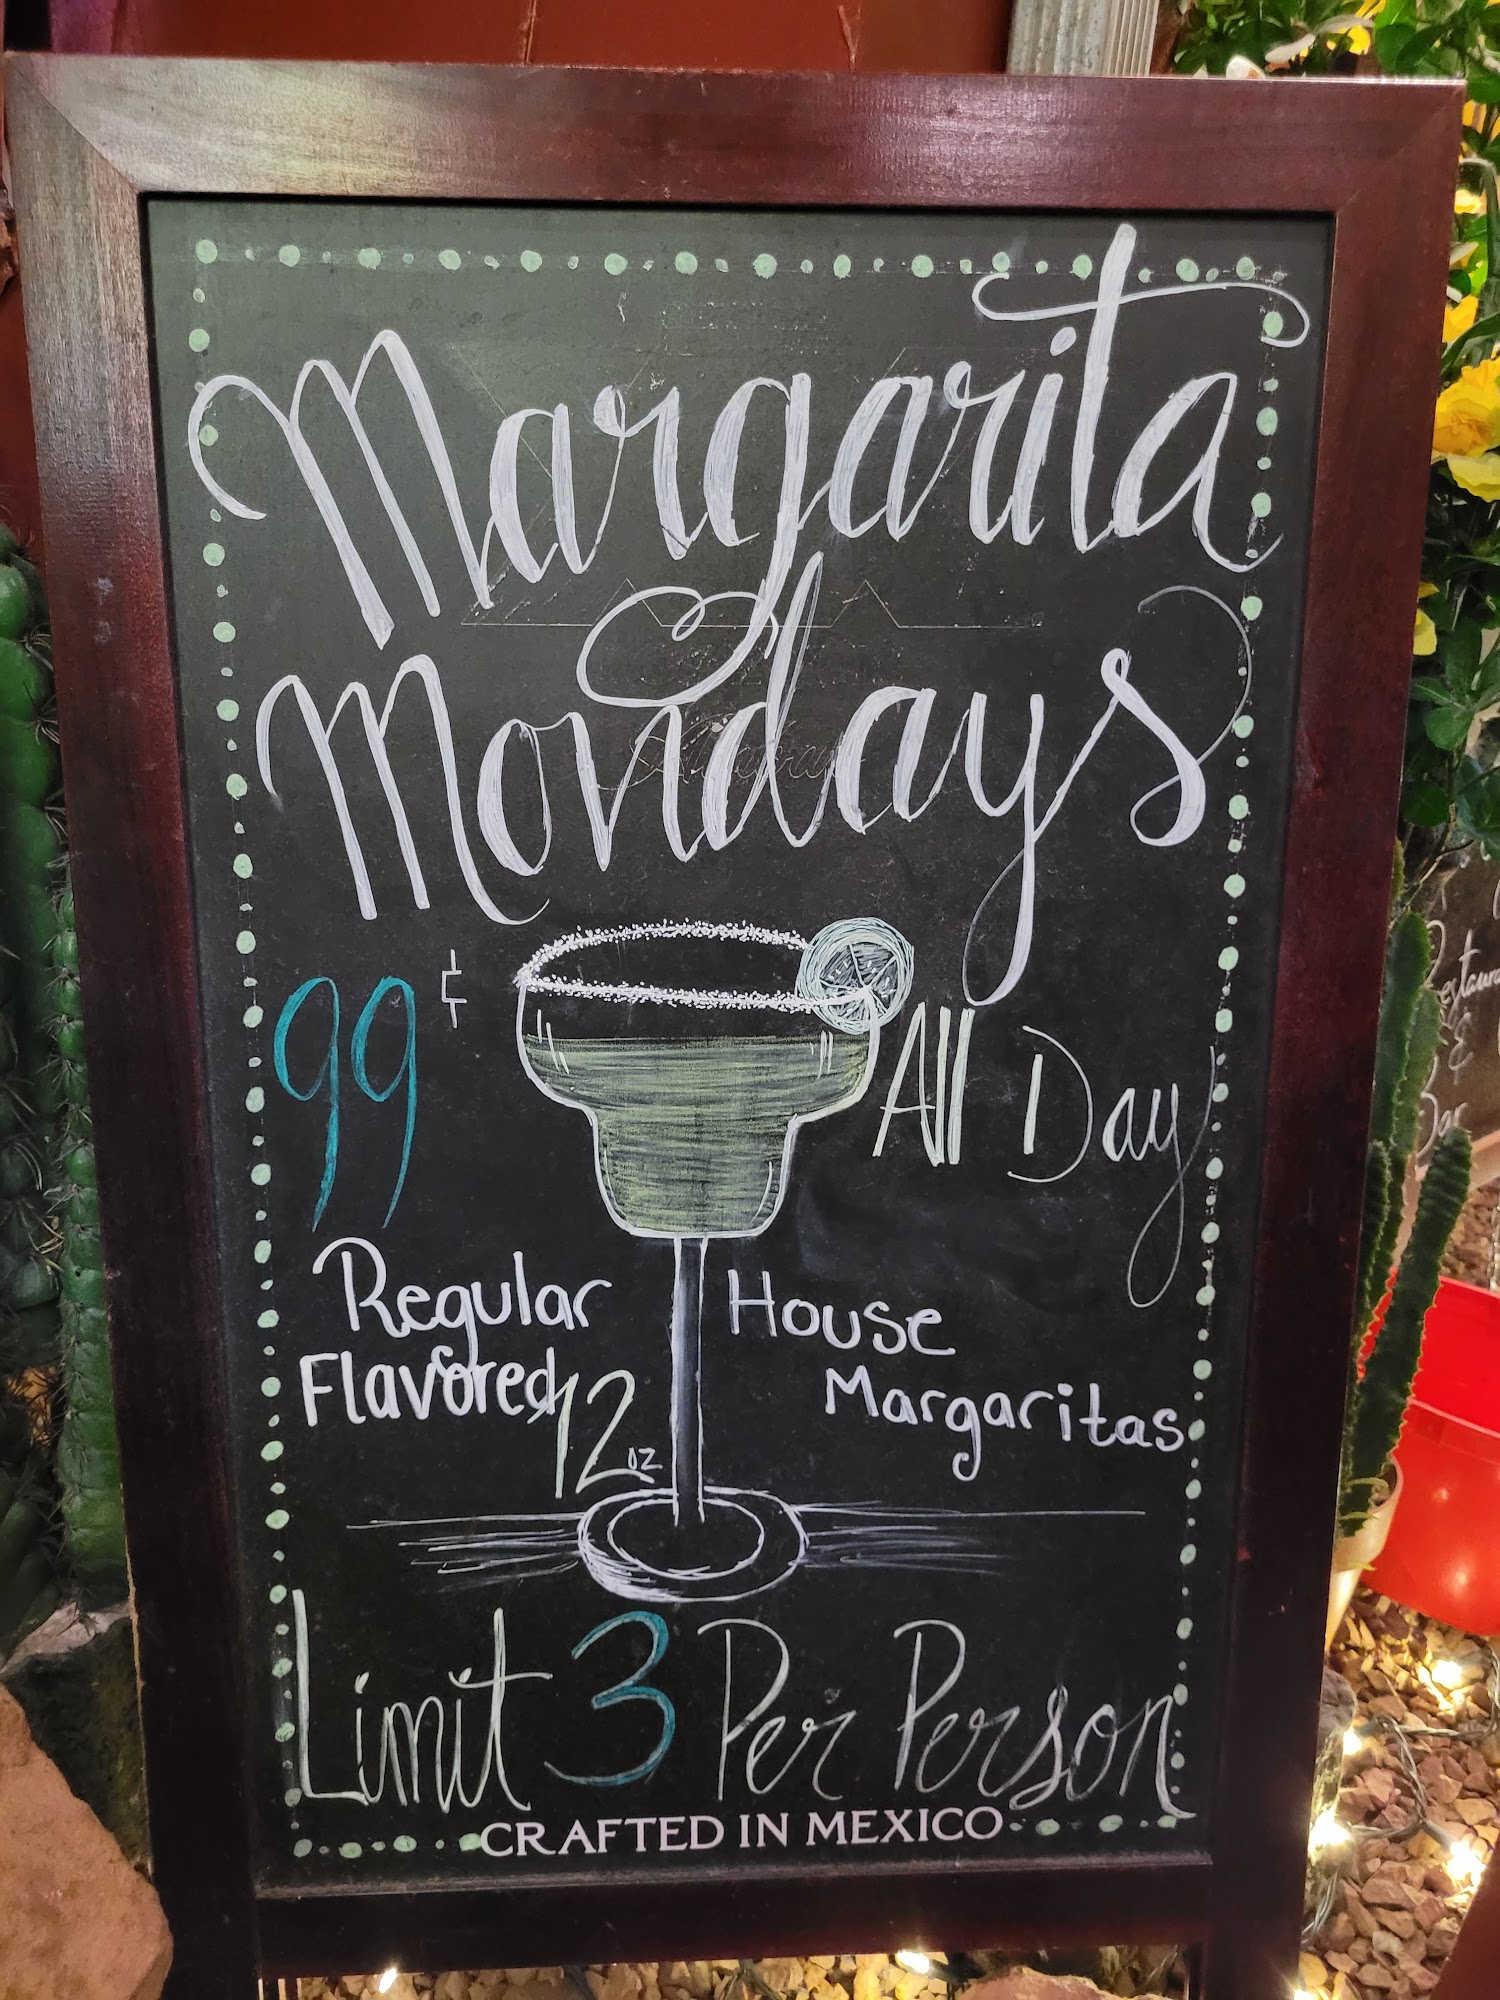 Margarita
Mondays
99¢
All Day
Regular
Flavored
12oz
House
Margaritas
Limit 3 Per Person
CRAFTED IN MEXICO
&
Bar